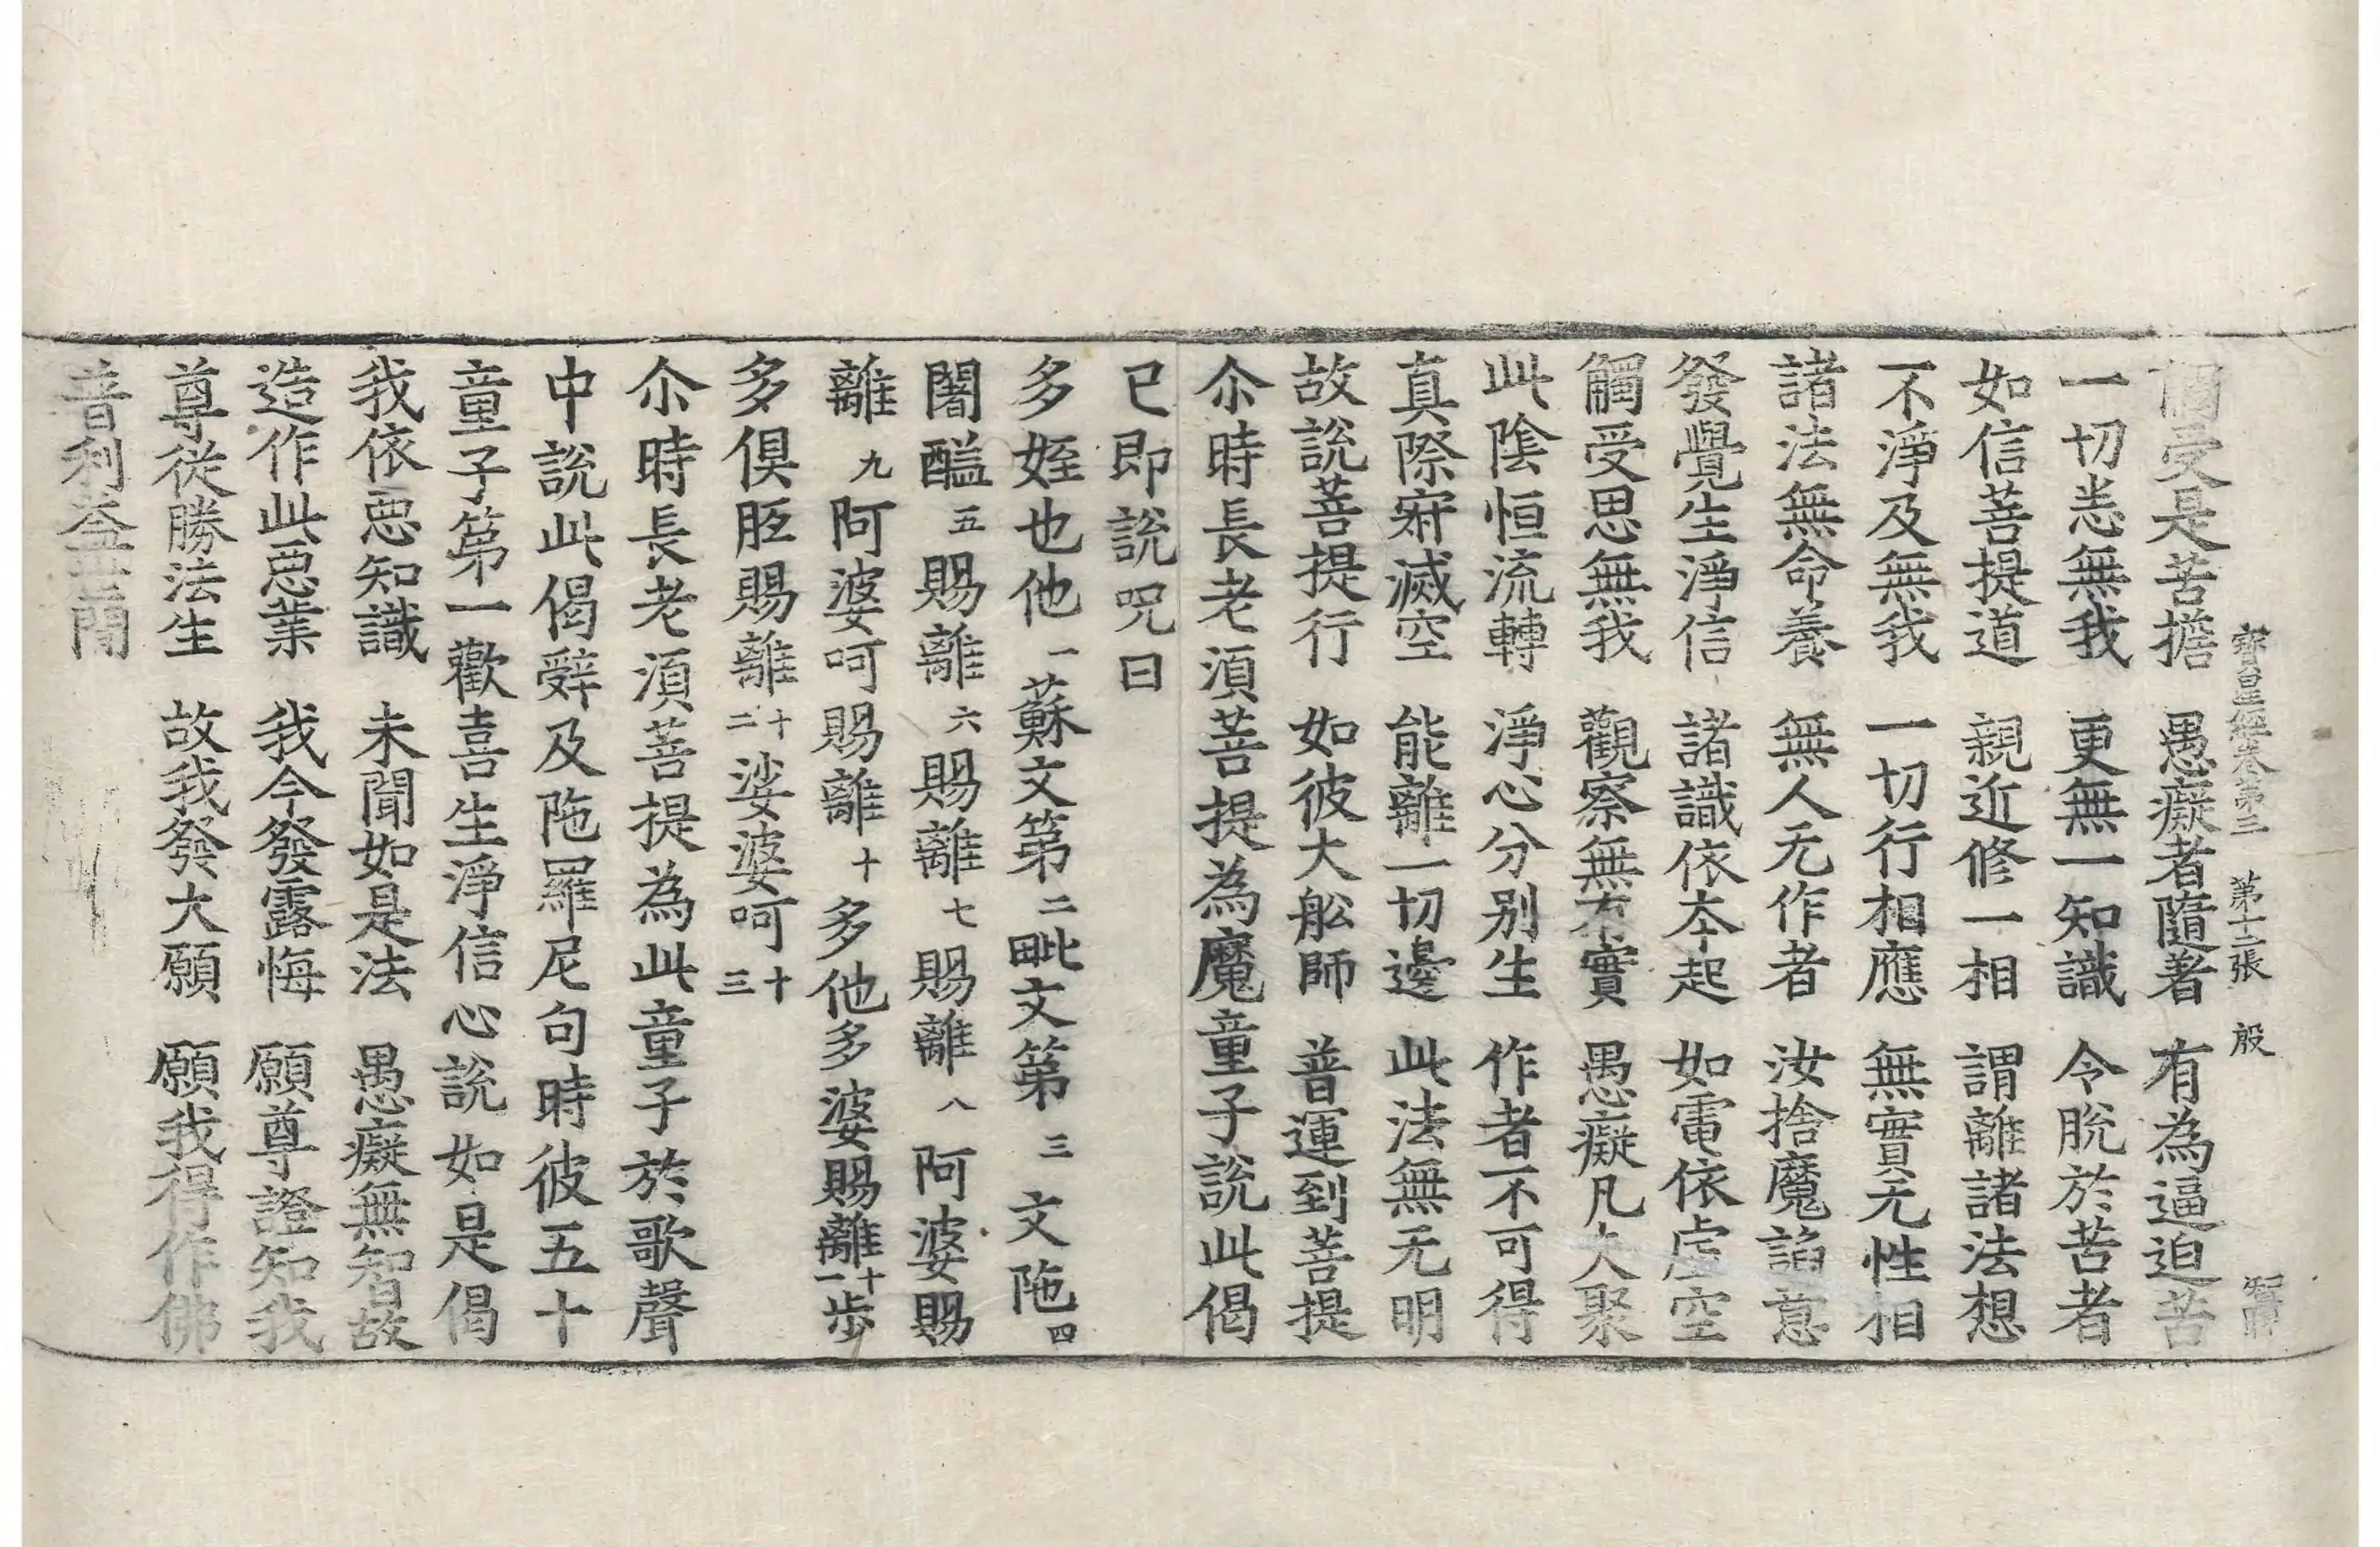 寶星經卷第三 第十二張 殷
觸受是苦擔 愚癡者隨著 有為逼迫苦
一切恙無我 更無一知識 令脫於苦者
如信菩提道 親近修一相 謂離諸法想
不淨及無我 一切行相應 無實无性相
諸法無命養 無人无作者 汝捨魔諂意
發覺生淨信 諸識依夲起 如電依虛空
觸受思無我 觀察無有實 愚癡凡大聚
此陰恒流轉 淨心分別生 作者不可得
真際㝛滅空 能離一切邊 此法無无明
故說菩提行 如彼大舩師 普運到菩提
尒時長老湏菩提為魔童子說此偈
已即說呪曰
多姪也他一蘇文第二毗文第三文陁四
闍醯五賜離六賜離七賜離八阿婆賜
離九阿婆呵賜離十多他多婆賜離十一步
多俱胝賜離十二娑婆呵十三
尒時長老湏菩提為此童子於歌聲
中說此偈辝及陁羅尼句時彼五十
童子第一歡喜生淨信心說如是偈
我依惡知識 未聞如是法 愚癡無智故
造作此惡業 我今發露悔 願尊證知我
尊從勝法生 故我發大願 願我得作佛
普利益世間